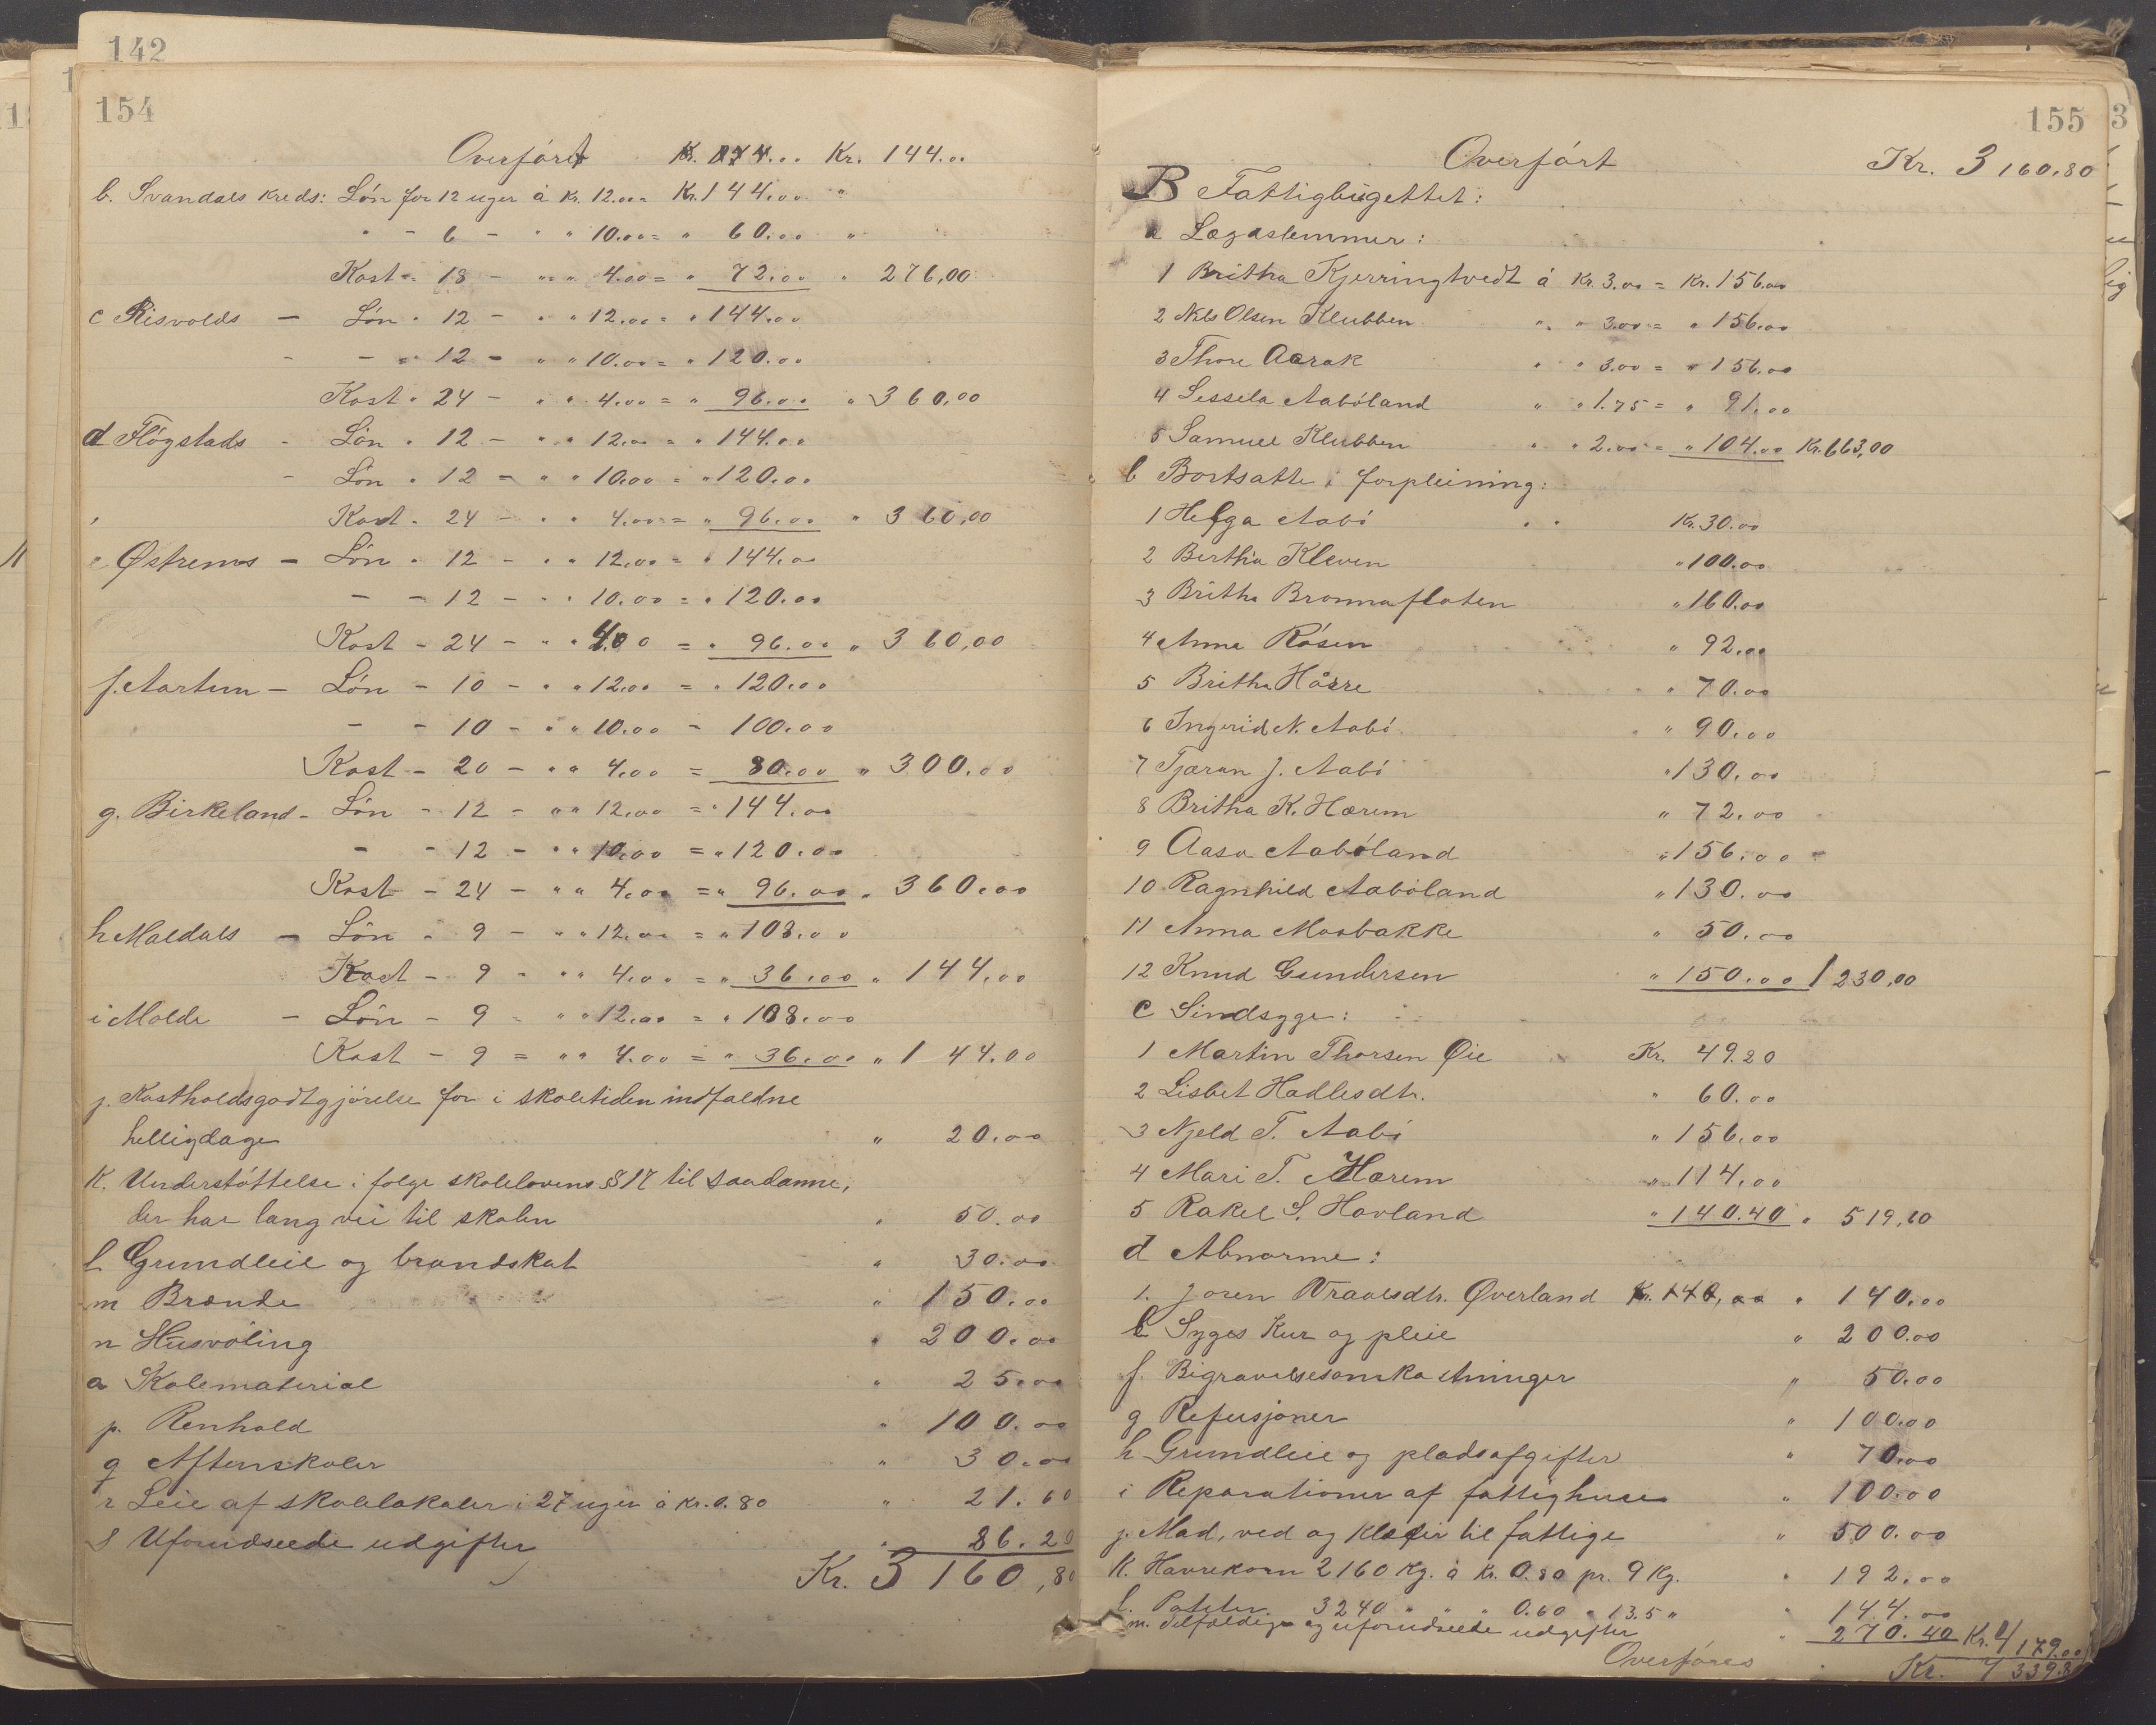 142
154
Overført Kr. 144.00
b. Svandals Kreds: Løn for 12 uger á Kr. 12.00 = Kr. 144.00 "
" - 6 - " " 10.00 = " 60.00 "
Kost " 18 - " " 4.00 = " 72.00 " 276,00
c Risvolds - Løn " 12 - " " 12.00 = " 144.00
- - " 12 - " " 10.00 = " 120.00
Kost " 24 - " " 4.00 = " 96.00 " 360,00
d Fløgstads - Løn " 12 - " " 12.00 = " 144.00
- Løn " 12 - " " 10.00 = " 120.00
Kost " 24 - " " 4.00 = " 96.00 " 360,00
e Østrems - Løn " 12 - " " 12.00 = " 144.00
- - 12 - " " 10.00 = " 120.00
Kost - 24 - " " 4.00 = " 96.00 " 360,00
f. Aartun - Løn - 10 - " " 12.00 = " 120.00
- - 10 - " " 10.00 - 100.00
Kost - 20 - " " 4.00 = 80.00 " 300.00
g. Birkeland - Løn - 12 - " " 12.00 = " 144.00
- - 12 - " " 10.00 = " 120.00
Kost - 24 - " " 4.00 = " 96.00 " 360.00
h Maldals - Løn - 9 - " " 12.00 = " 108.00
Kost - 9 - " " 4.00 = " 36.00 " 144.00
i Molde - Løn - 9 - " " 12.00 = " 108.00
Kost - 9 = " " 4.00 = " 36.00 " 144.00
j. Kostholdsgodtgjørelse for i skoletiden indfaldne
helligdage " 20.00
K. Understøttelse i følge skolelovens § 17 til saadanne,
der har lang vei til skolen " 50.00
l Grundleie og brandskat " 30.00
m Brænde " 150.00
n Husvøling " 200.00
o Skolemateriel " 25.00
p. Renhold " 100.00
q Aftenskoler " 30.00
r Leie af skolelokaler i 27 uger á Kr. 0.80 " 21.60
s Uforudseede udgifter " 86.20
Kr. 3160,80
155
Overført Kr. 3160.80
B Fattigbugettet:
a Lægdslemmer:
1 Britha Kjerringtvedt á Kr. 3.00 = Kr. 156.00
2 Nils Olsen Klubben " " 3.00 = " 156.00
3 Thore Aarak " " 3.00 = " 156.00
4 Sessela Aabøland " " 1.75 = " 91.00
5 Samuel Klubben " " 2.00 = " 104.00 Kr. 663,00
b Bortsatte i forpleining:
1 Helga Aabø " " Kr. 30.00
2 Bertha Kleven " 100.00
3 Britha Bronnafloten " 160.00
4 Anna Røsen " 92.00
5 Britha Haare " 70.00
6 Ingerid N. Aabø " 90.00
7 Tjæran J. Aabø " 130.00
8 Britha K. Hærem " 72.00
9 Aasa Aabøland " 156.00
10 Ragnhild Aabøland " 130.00
11 Anna Moabakke " 50.00
12 Knud Gundersen " 150.00 1230,00
c Sindsyge:
1 Martin Thorsen Øie Kr. 49.20
2 Lisbet Hadlesdtr. " 60.00
3 Njeld T. Aabø " 156.00
4 Mari T. Hærem " 114.00
5 Rakel S. Havland " 140.40 " 519,60
d Abnorme:
1. Joren Wraalsdtr. Øverland Kr. 140,00 " 140.00
e Syges Kur og pleie " 200.00
f. Bigravelsesomkostninger " 50.00
g Refusjoner " 100.00
h Grundleie og pladsafgifter " 70.00
i Reparationer af fattighuse " 100.00
j. Mad, ved og klæder til fattige " 500.00
K. Havrekorn 2160 Kg. á Kr. 0.80 pr. 9 Kg. " 192.00
l. Poteter 3240 " " " 0.60 " 13.5 " " 144.00
m. Tilfældige og uforudseede udgifter " 270.40 Kr. 4179.00
Overføres Kr. 7339.8